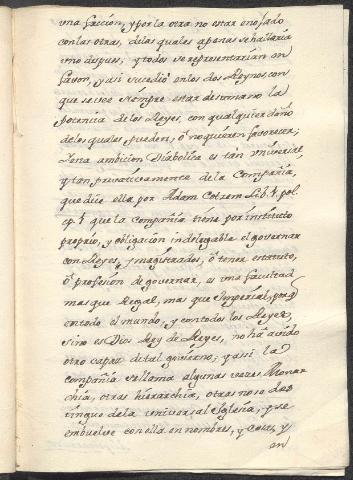 una facción, y por la otra no estar enojado
con las otras, delas quales apenas se hallaría
uno despues; y todos se representarían en
favor, y asi sucedió en los dos Reynos, con
que se veo siempre estar destinario la
potencia de los Reyes, con qualquier daño
delos quales pueden, ó no quieren favorecer;
esta ambicion Diabolica es tan universal
y tan privativamente de la Compañía,
que dice ella por Adam Cotzem Lib. 4. pol.
cp. 5 que la compañia tiene por instituto
proprio, y obligacion indelegable el governar
con Reyes, y magistrados, ó tener estatuto,
ó profesion de governar, es una facultad
mas que Regal, mas que Imperial, porq
en todo el mundo, y con todos los Reyes,
sino es Dios Rey de Reyes, no ha avido
otro capaz de tal govierno; y assi la
compañia se llama algunas vezes Monar
chia, otras hierarchia, otras no se des
tingue de la universal Iglesia, y se
embuelve con ella en nombres, y voces, y
en